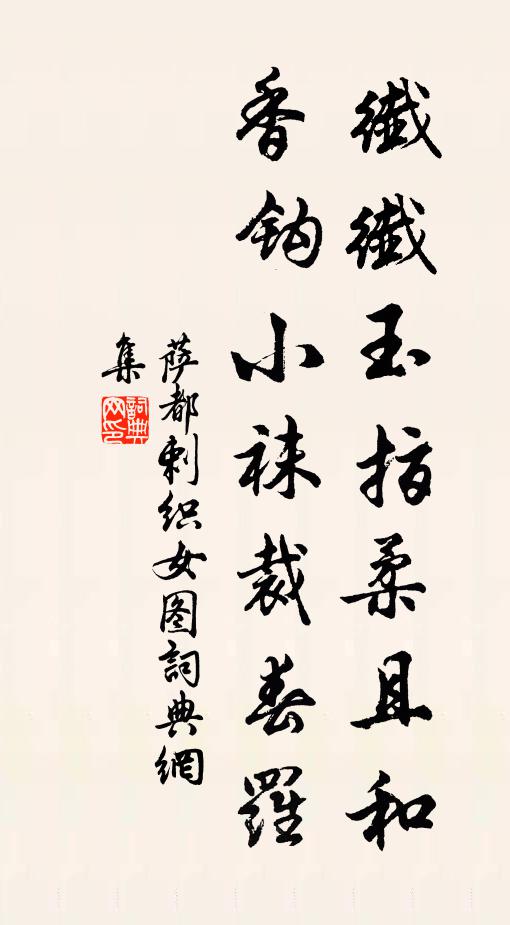 纖纖玉指柔且和
香鉤小袜裁春羅
萨都剌织女图詞典網
集
詞典
网印